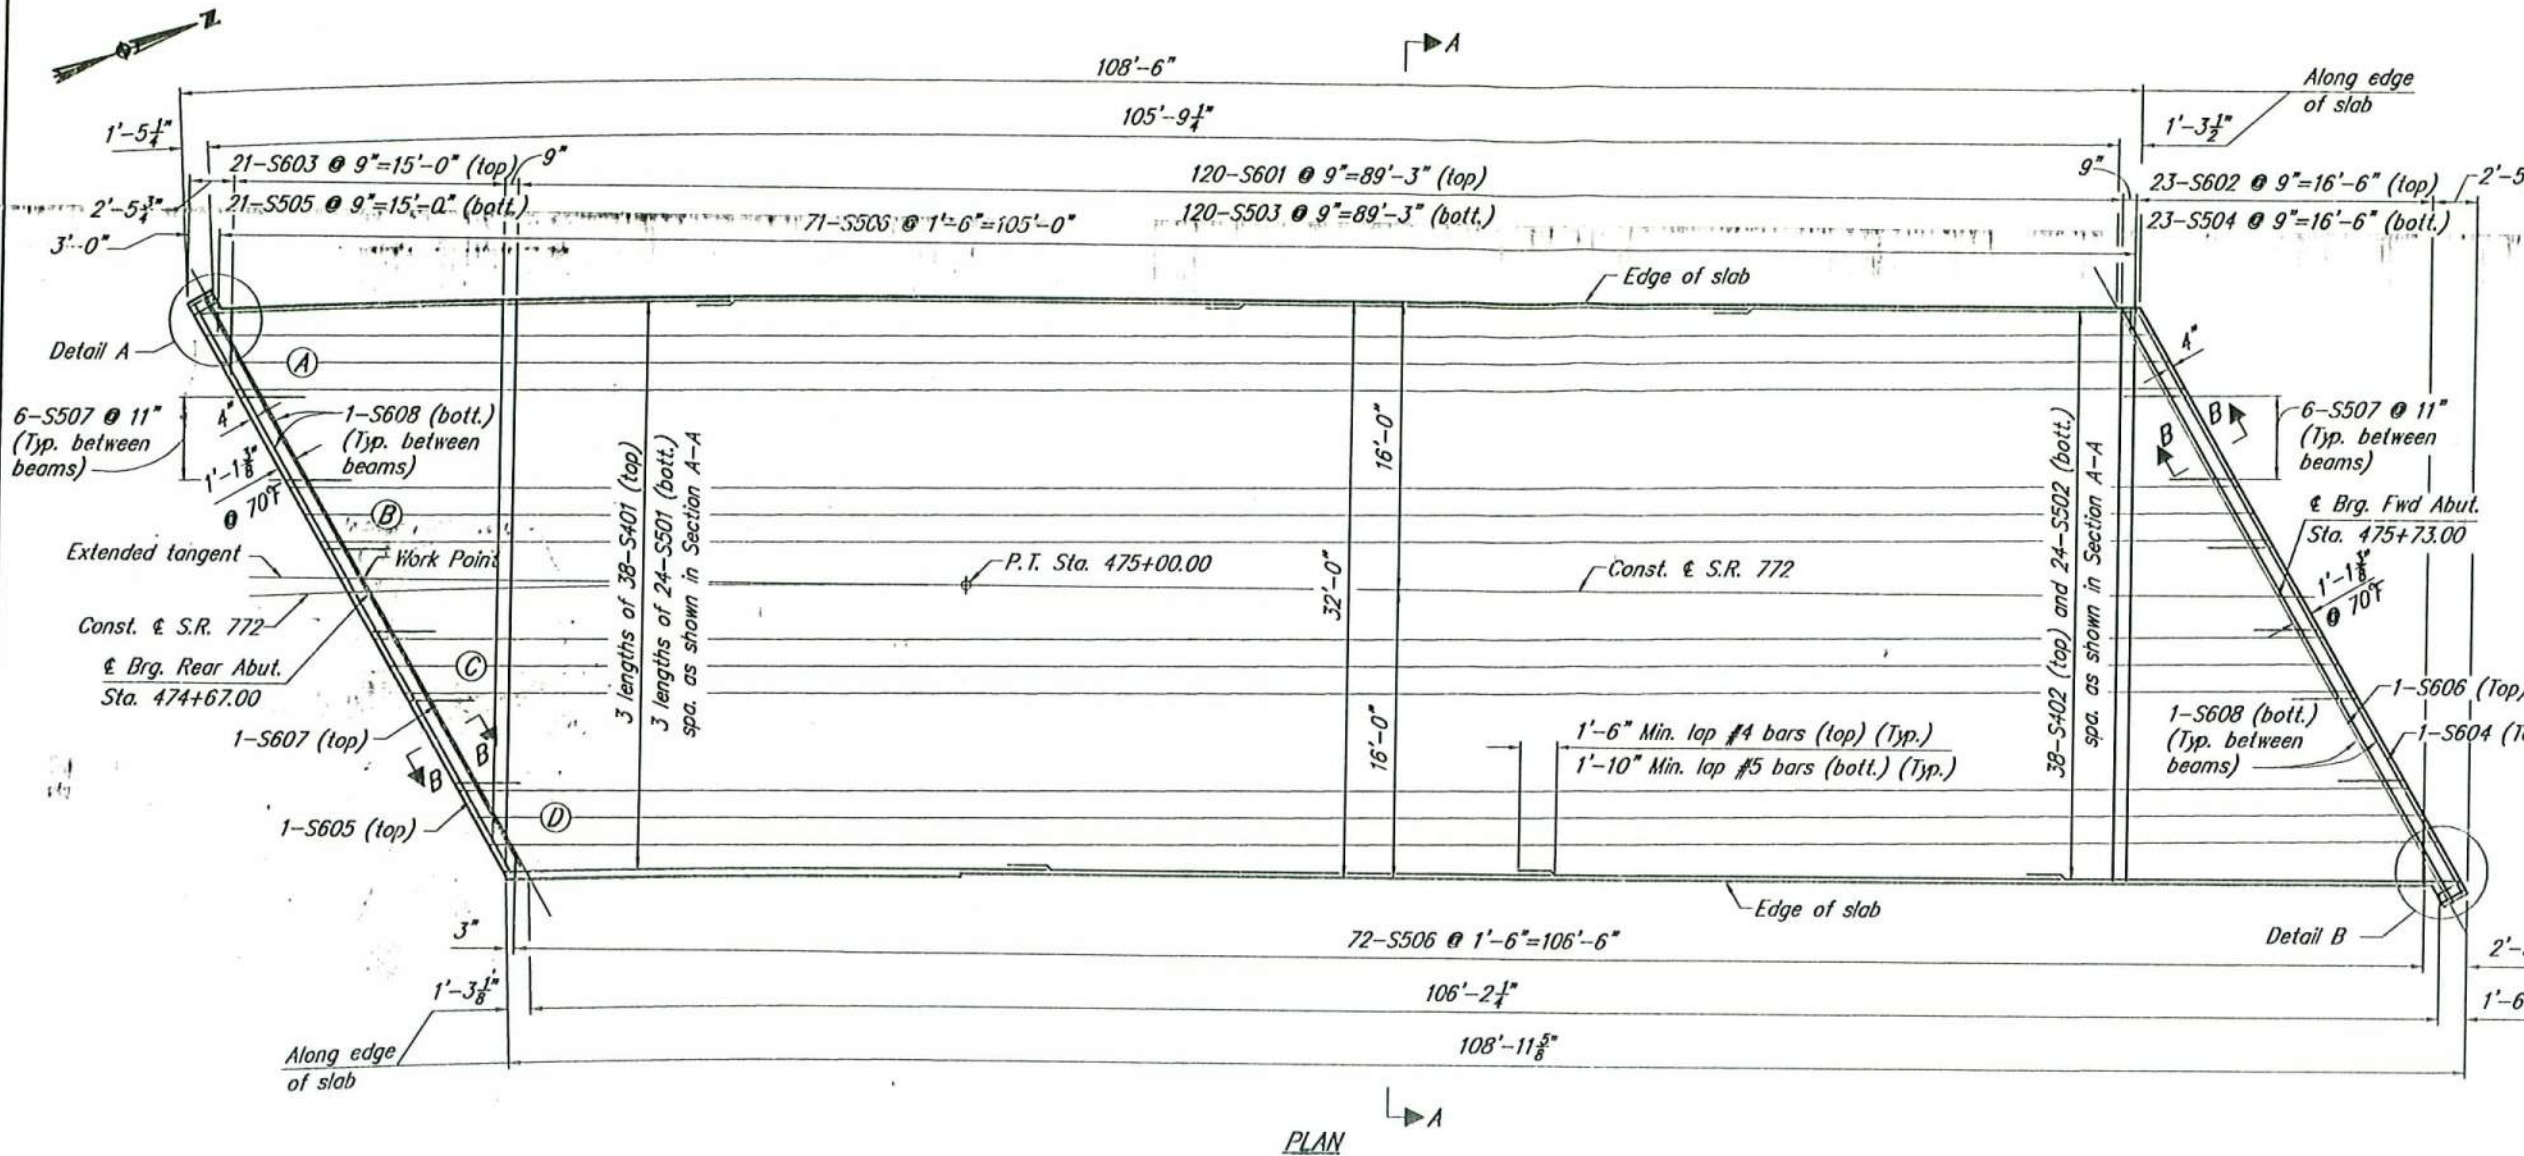 N
A
108'-6"
Along edge
of slab
105'-9 1/4"
1'-5 1/4"
1'-3 1/2"
21-S603 @ 9"=15'-0" (top)
9"
120-S601 @ 9"=89'-3" (top)
9"
23-S602 @ 9"=16'-6" (top)
2'-5
2'-5 3/4"
21-S505 @ 9"=15'-0" (bott.)
71-S506 @ 1'-6"=105'-0"
120-S503 @ 9"=89'-3" (bott.)
23-S504 @ 9"=16'-6" (bott.)
3'-0"
Edge of slab
Detail A
A
4"
6-S507 @ 11"
(Typ. between
beams)
4"
1-S608 (bott.)
(Typ. between
beams)
1'-1 3/8"
@ 70°F
B
Extended tangent
Work Point
Const. ℄ S.R. 772
℄ Brg. Rear Abut.
Sta. 474+67.00
C
1-S607 (top)
B
B
1-S605 (top)
D
3 lengths of 38-S401 (top)
3 lengths of 24-S501 (bott.)
spa. as shown in Section A-A
P.T. Sta. 475+00.00
32'-0"
16'-0"
16'-0"
Const. ℄ S.R. 772
1'-6" Min. lap #4 bars (top) (Typ.)
1'-10" Min. lap #5 bars (bott.) (Typ.)
38-S402 (top) and 24-S502 (bott.)
spa. as shown in Section A-A
B
B
6-S507 @ 11"
(Typ. between
beams)
℄ Brg. Fwd Abut.
Sta. 475+73.00
1'-1 3/8"
@ 70°F
1-S606 (Top)
1-S608 (bott.)
(Typ. between
beams)
1-S604
Edge of slab
3"
72-S506 @ 1'-6"=106'-6"
Detail B
1'-3 1/8"
106'-2 1/4"
1'-6
Along edge
of slab
108'-11 5/8"
A
PLAN